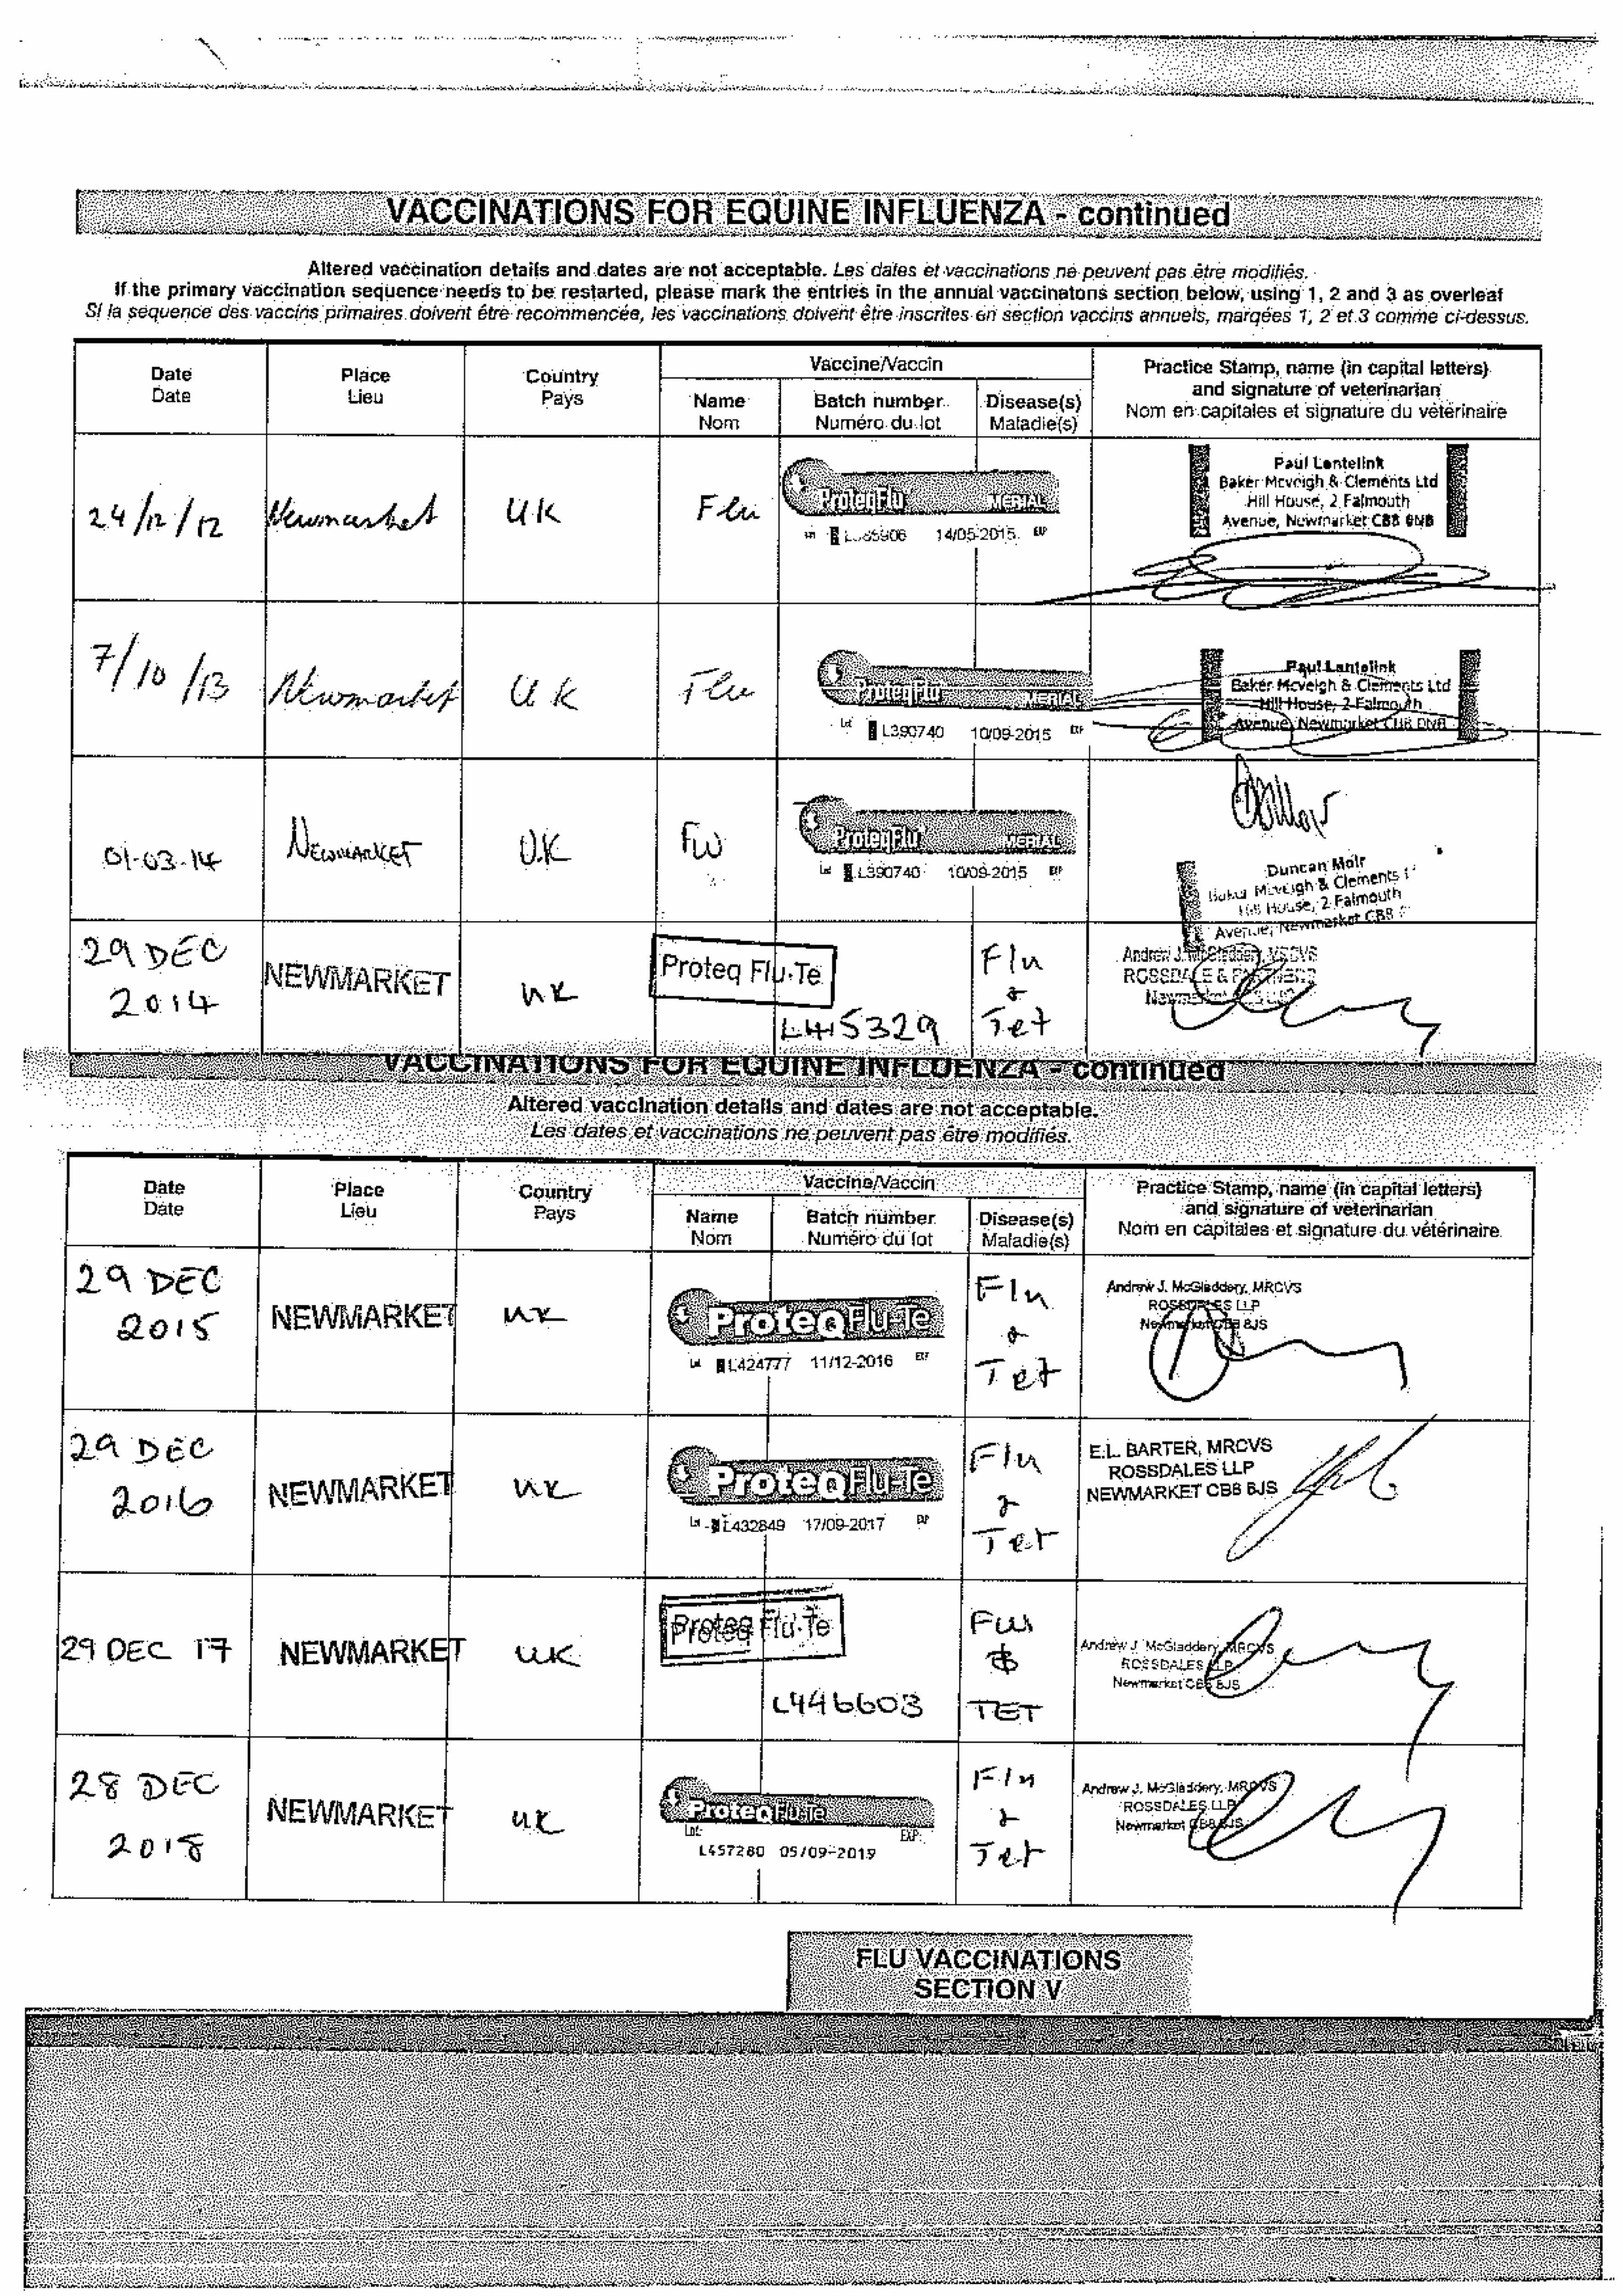 VACCINATIONS FOR EQUINE INFLUENZA - continued
Altered vaccination details and dates are not acceptable. Les dates et vaccinations ne peuvent pas être modifiés.
If the primary vaccination sequence needs to be restarted, please mark the entries in the annual vaccinatons section below, using 1, 2 and 3 as overleaf
Si la séquence des vaccins primaires doivent être recommencée, les vaccinations doivent être inscrites en section vaccins annuels, marqées 1, 2 et 3 comme ci-dessus.
Date Place Country Vaccine/Vaccin Practice Stamp, name (in capital letters)
Date Lieu Pays Name Batch number Disease(s) and signature of veterinarian
Nom Numéro du lot Maladie(s) Nom en capitales et signature du vétérinaire
Paul Lantelink
Baker Mcveigh & Clements Ltd
Hill House, 2 Falmouth
Avenue, Newmarket CB8 0NB
24/12/12 Newmarket UK Flu ProteqFlu MERIAL
14/05-2015 EXP
Paul Lantelink
Baker Mcveigh & Clements Ltd
Hill House, 2 Falmouth
Avenue, Newmarket CB8 0NB
7/10/13 Newmarket UK Flu ProteqFlu MERIAL
Lot L390740 10/09-2015 EXP
01-03-14 NEWMARKET U.K Flu ProteqFlu MERIAL
Lot L390740 10/09-2015 EXP
Duncan Moir
Baker Mcveigh & Clements
Hill House, 2 Falmouth
Avenue, Newmarket CB8
29 DEC 2014 NEWMARKET UK Proteq Flu-Te L415329 Flu & Tet
Andrew J. McGladdery, MRCVS
ROSSDALE & PARTNERS
Newmarket
VACCINATIONS FOR EQUINE INFLUENZA - continued
Altered vaccination details and dates are not acceptable.
Les dates et vaccinations ne peuvent pas être modifiés.
Date Place Country Vaccine/Vaccin Practice Stamp, name (in capital letters)
Date Lieu Pays Name Batch number Disease(s) and signature of veterinarian
Nom Numéro du lot Maladie(s) Nom en capitales et signature du vétérinaire
29 DEC 2015 NEWMARKET UK ProteqFlu-Te Flu & Tet
Lot L424777 11/12-2016 EXP
Andrew J. McGladdery, MRCVS
ROSSDALES LLP
Newmarket CB8 8JS
29 DEC 2016 NEWMARKET UK ProteqFlu-Te Flu & Tet
Lot L432849 17/09-2017 EXP
E.L. BARTER, MRCVS
ROSSDALES LLP
NEWMARKET CB8 8JS
29 DEC 17 NEWMARKET UK Proteq Flu-Te L446603 Flu & TET
Andrew J. McGladdery, MRCVS
ROSSDALES LLP
Newmarket CB8 8JS
28 DEC 2018 NEWMARKET UK ProteqFlu-Te Flu & Tet
Lot: EXP:
L457280 05/09-2019
Andrew J. McGladdery, MRCVS
ROSSDALES LLP
Newmarket CB8 8JS
FLU VACCINATIONS
SECTION V